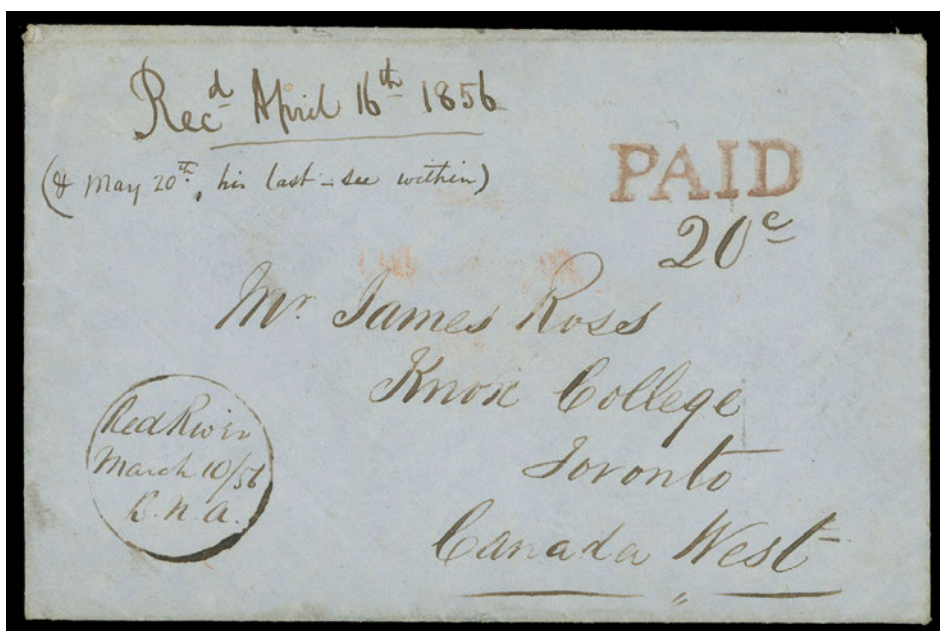 Recd April 16th 1856
(& May 20th, his last - see within)
PAID
20c
Mr. James Ross
Knox College
Toronto
Canada West
Red River
March 10/56
B. N. A.